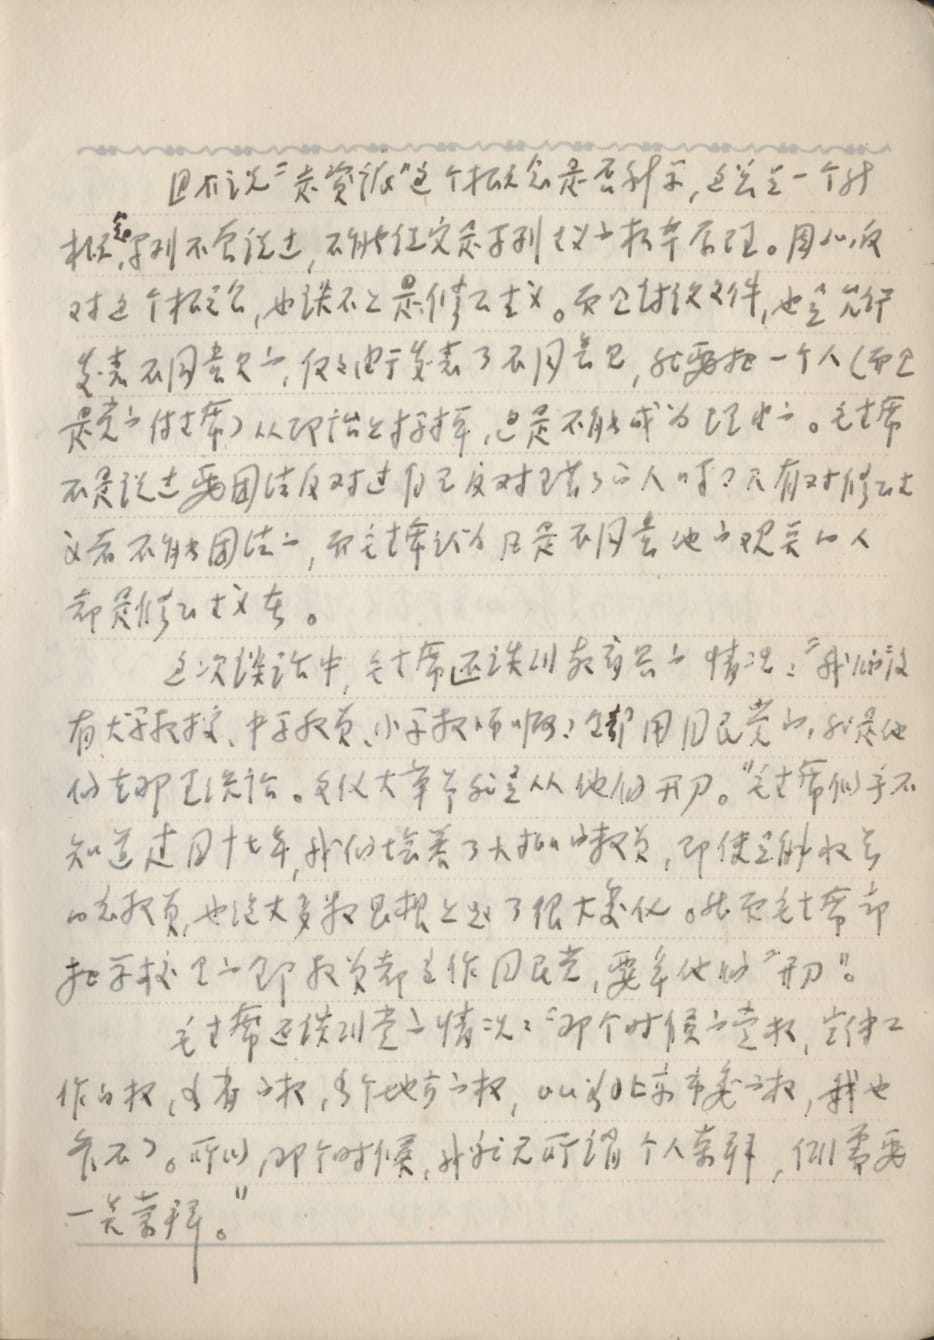 且不说“走资派”这个概念是否科学，这总是一个新
概念，列宁不曾说过，不能红定是列宁主义的根本原理。因此，反
对这个概念，也谈不上是修正主义。而且讨论文件，也是允许
发表不同意见的，仅仅由于发表了不同意见，就要把一个人（而且
是党的付主席）从政治上打掉，也是不能成为理由的。毛主席
不是说过要团结反对过自己反对错了的人吗？只有对修正主
义者不能团结的，而毛主席认为凡是不同意他的观点的人
都是修正主义者。
这次谈话中，毛主席还谈到教育界的情况：“我们没
有大学教授、中学教员、小学教师啊，全部用国民党的，就是他
们在那里统治。文化大革命就是从他们开刀。”毛主席似乎不
知道建国十七年，我们培养了大批的教员，即使是解放前
的老教员，也绝大多数思想上起了很大变化。然而毛主席却
把学校里的教员都看作国民党，要拿他们“开刀”。
毛主席还谈到党的情况：“那个时候的党权，宣传工
作的权，各省的权，各个地方的权，比如北京市委的权，我也
管不了。所以，那个时候，我说无所谓个人崇拜，倒需要
一点崇拜。”